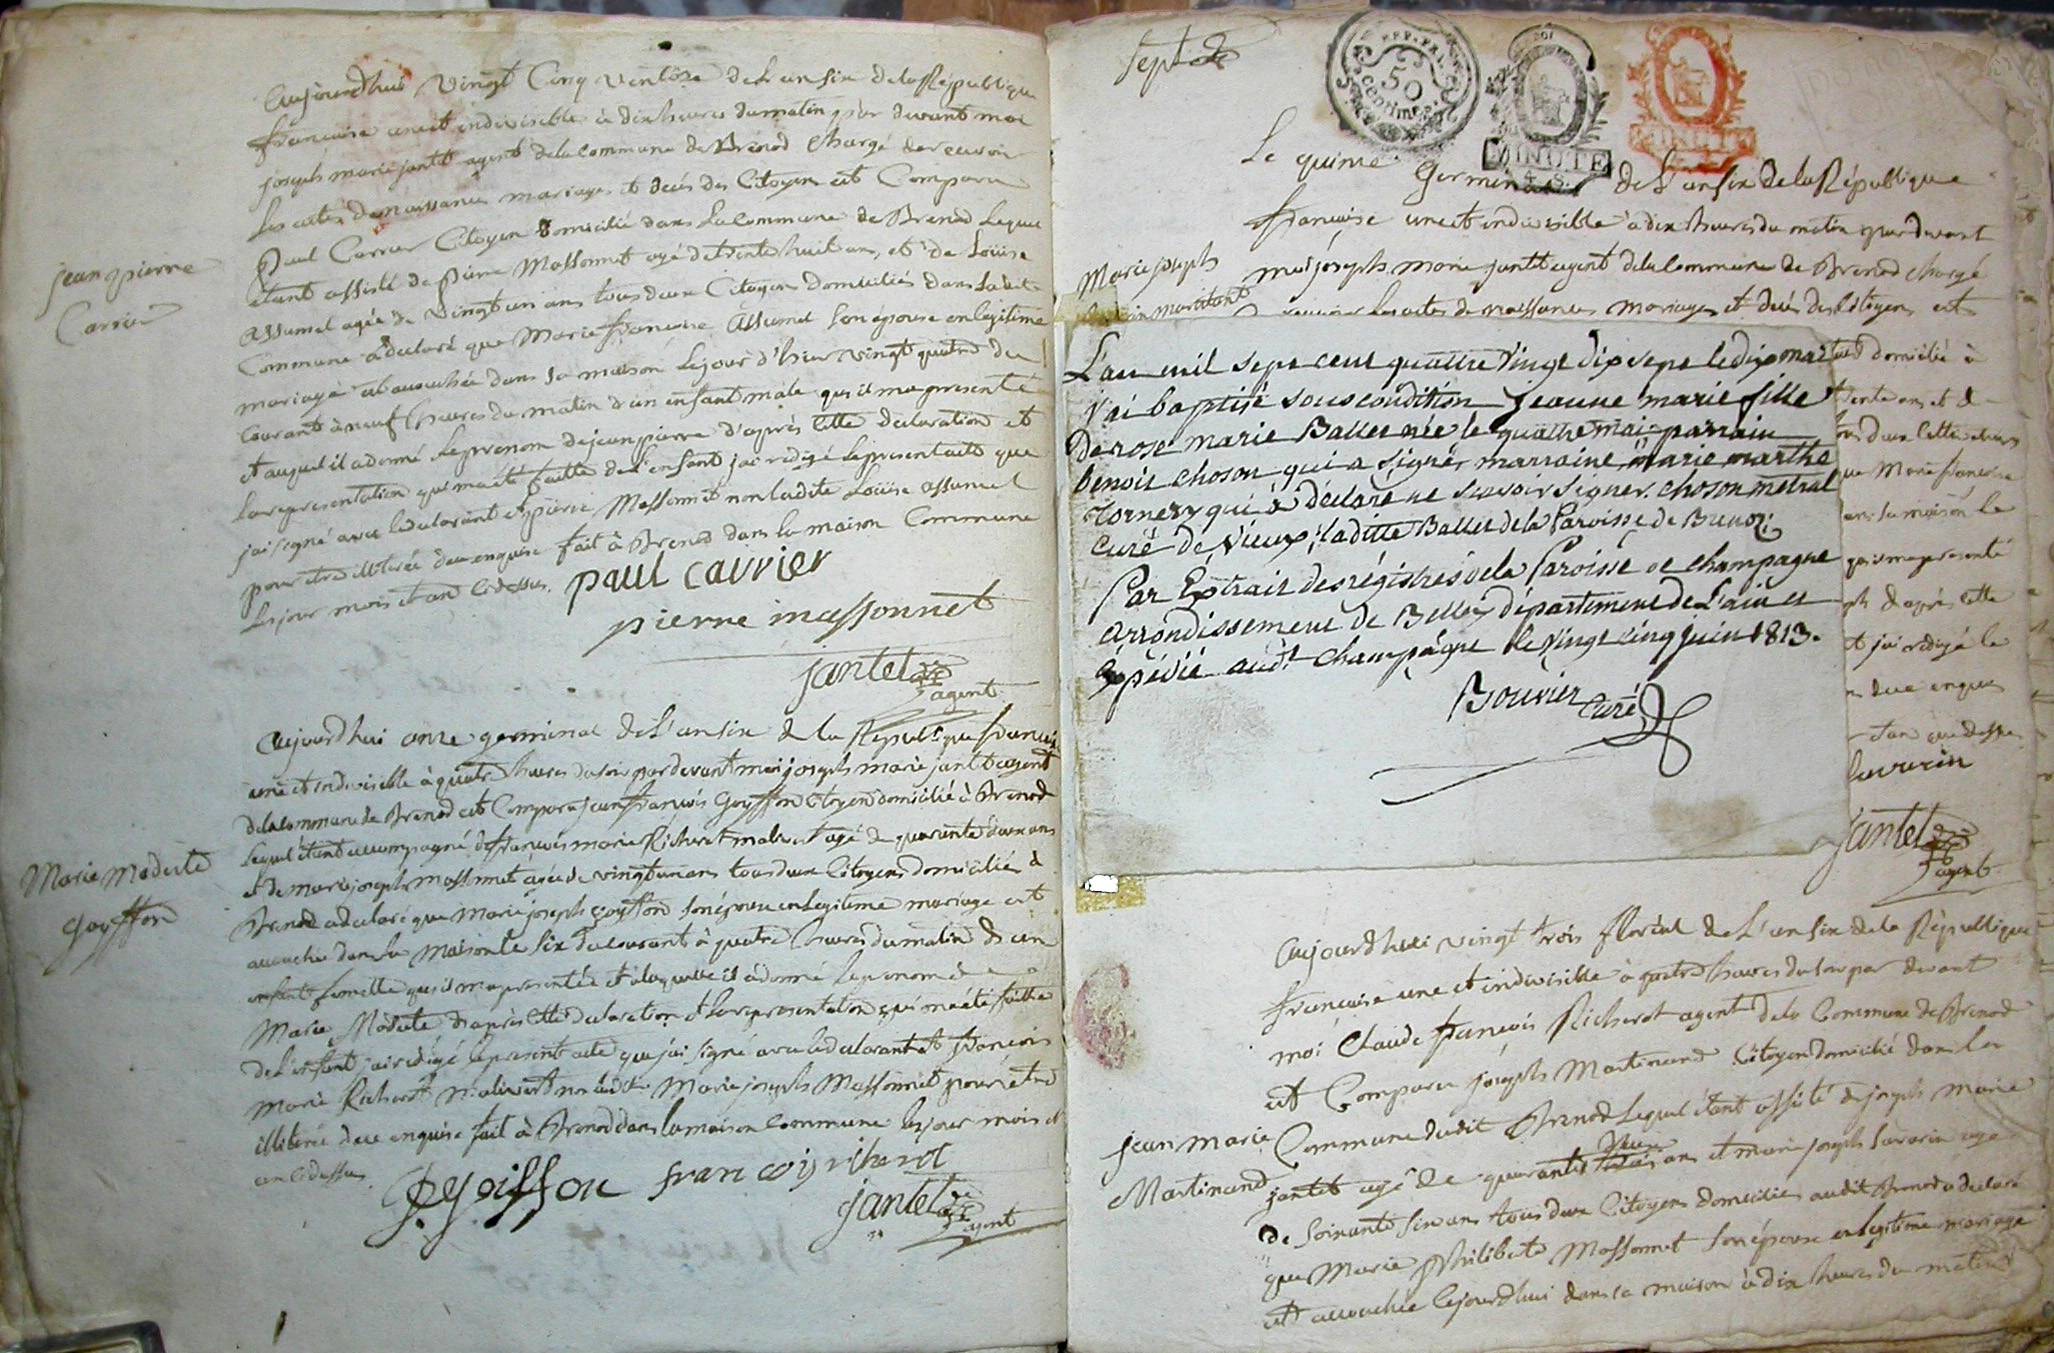 Aujourdhui vingt Cinq ventôse de L'an six de la République
francoise une et indivisible à dix heures du matin par devant moi
joseph marie jantet agent de la Commune de Brénod Chargé de recevoir
Les actes de naissances mariages et décés des Citoyens est Comparu
Paul Carrier Citoyen domicilié dans La Commune de Brénod Lequel
étant assisté de pierre Massonnet agé de trente huit ans, et de Loüise
Assumel agée de vingt un ans tous deux Citoyens domiciliés dans Ladite
Commune a declaré que Marie francoise Assumel son épouse en légitime
mariage est accouchée dans sa maison Le jour d'hier vingt quatre du
Courant à neuf heures du matin d'un enfant male qu'il m'a presenté
et auquel il a donné Le prenom de jean pierre d'après cette declaration et
La representation qui m'a été faitte de L'enfant j'ai redigé Le present acte que
j'ai signé avec Le declarant et pierre Massonnet non ladite Loüise assumel
pour etre illiterée deue enquise fait à Brenod dans la maison Commune
Les jour mois et an Cidessus.
jean pierre
Carrier
paul carrier
pierre massonnet
jantet
agent
Aujourdhui onze germinal de L'an six de la République francoise
une et indivisible à quatre heures du soir par devant moi joseph marie jantet agent
de la commune de Brenod est Comparu jean françois Goyffon Citoyen domicilié à Brenod
Lequel étant accompagné de françois marie Richerot malivert agé de quarante deux ans
et de marie joseph massonnet agée de vingt un ans tous deux Citoyens domiciliés à
Brenod a declaré que Marie joseph goyffon son épouse en Legitime mariage est
accouchée dans sa Maison Le six du courant à quatre heures du matin d'un
enfant femelle qu'il m'a presentée et à laquelle il a donné Le prenom de
Marie Modeste d'après cette declaration et La representation qui m'a été faitte
de L'enfant j'ai rédigé Le present acte que j'ai signé avec Le declarant et francois
Marie Richerot malivert non ladite Marie joseph Massonnet pour etre
illiterée deue enquise fait à Brenod dans la maison Commune Les jour mois et
an cidessus
Marie modeste
goyffon
goiffon francois richerot
jantet
agent
REP. FRA.
50
centimes.
MINUTE
MINUTE
Le quinze germinal de L'an six de la République
francoise une et indivisible à dix heures du matin par devant
moi joseph marie jantet agent de la Commune de Brenod Chargé
de recevoir Les actes de naissances mariages et decés des Citoyens est
Marie joseph
L'an mil sept cent quattre vingt dix sept le dix mai
j'ai baptisé sous condition jeanne marie fille
de rose marie Ballet née le quatre mai parrain
benoit choson qui a signé, marraine marie marthe
Cornery qui a déclaré ne scavoir signer. choson metral
curé de vieux; laditte Ballet de la Paroisse de Brenoz;
Par Extrait des régistres de la Paroisse de champagne
arrondissement de Belley département de L'ain et
Expédié audt. champagne le vingt cinq juin 1813.
Bouvier curé
domicilié à
trente ans et de
que Marie francoise
dans sa maison le
qu'il m'a presenté
d'après cette
et j'ai redigé le
deue enquise
et an que dessus
savarin
jantet
agent
Aujourdhui vingt trois floréal de L'an six de la République
francoise une et indivisible à quatre heures du soir par devant
moi Claude françois Richerot agent de la Commune de Brenod
est Comparu joseph Martinand Citoyen domicilié dans La
Commune dudit Brenod Lequel étant assisté de joseph Marie
jantet agé de quarante deux ans et marie joseph savarin agé
de soixante six ans tous deux Citoyens domiciliés audit Brenod a declaré
que Marie philiberte Massonnet son épouse en legitime mariage
est accouchée cejourdhui dans sa maison à dix heures du matin
jean marie
Martinand